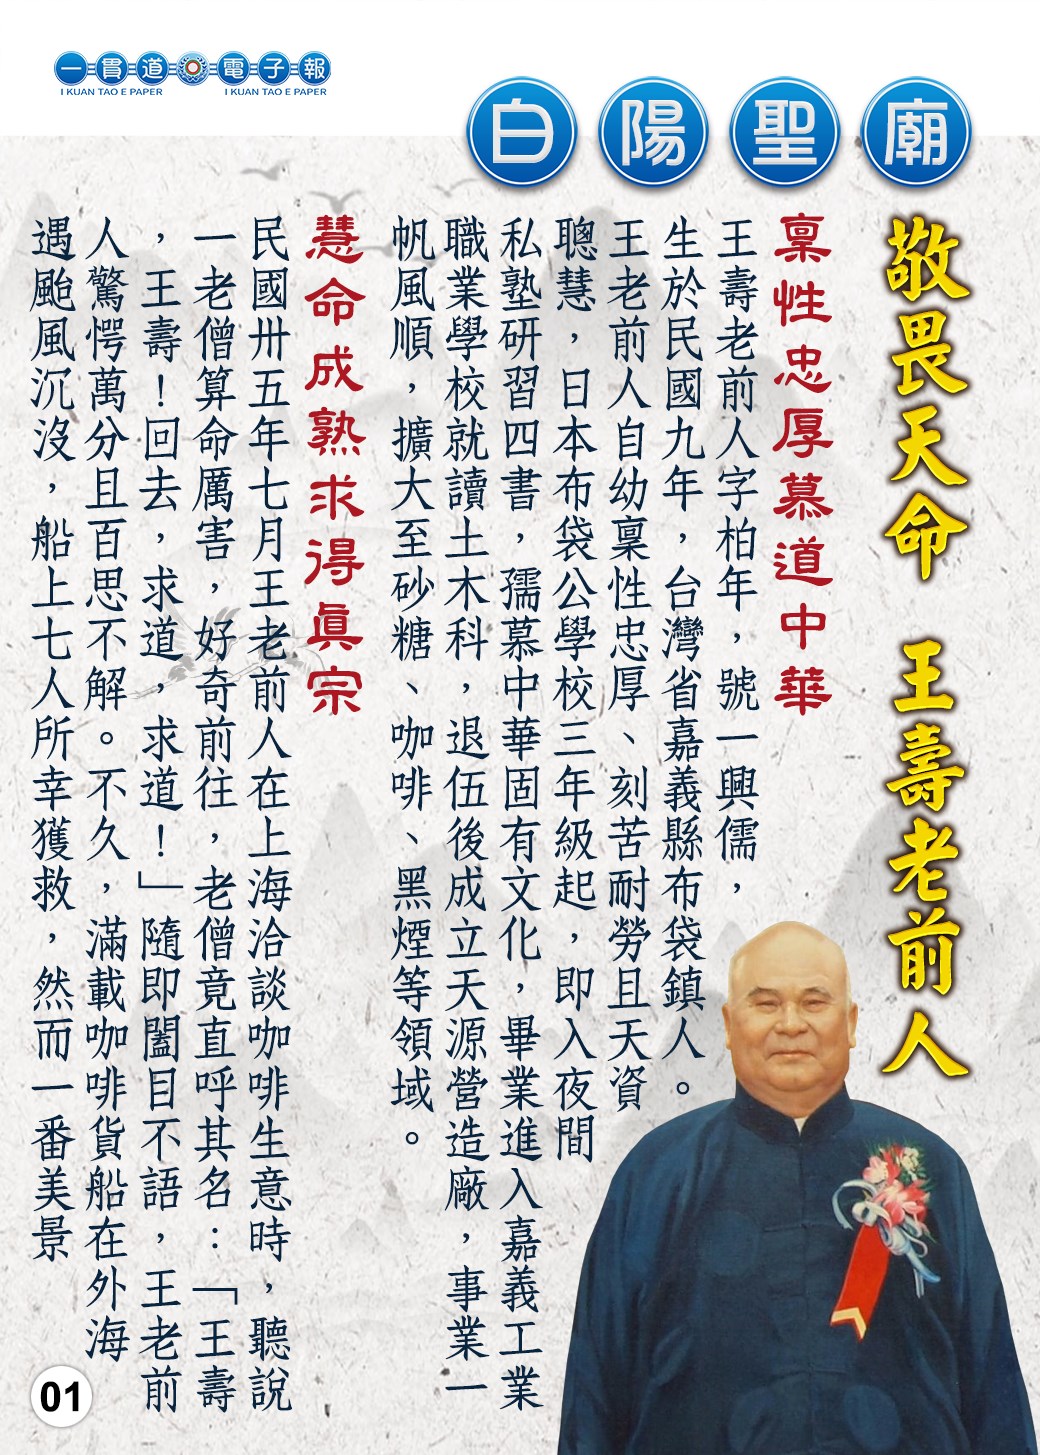 一貫道電子報
I KUAN TAO E PAPER I KUAN TAO E PAPER
白陽聖廟
敬畏天命 王壽老前人
稟性忠厚慕道中華
王壽老前人字柏年，號一興儒，
生於民國九年，台灣省嘉義縣布袋鎮人。
王老前人自幼稟性忠厚、刻苦耐勞且天資
聰慧，日本布袋公學校三年級起，即入夜間
私塾研習四書，孺慕中華固有文化，畢業進入嘉義工業
職業學校就讀土木科，退伍後成立天源營造廠，事業一
帆風順，擴大至砂糖、咖啡、黑煙等領域。
慧命成熟求得真宗
民國卅五年七月王老前人在上海洽談咖啡生意時，聽說
一老僧算命厲害，好奇前往，老僧竟直呼其名：「王壽
，王壽！回去，求道，求道！」隨即闔目不語，王老前
人驚愕萬分且百思不解。不久，滿載咖啡貨船在外海
遇颱風沉沒，船上七人所幸獲救，然而一番美景
01